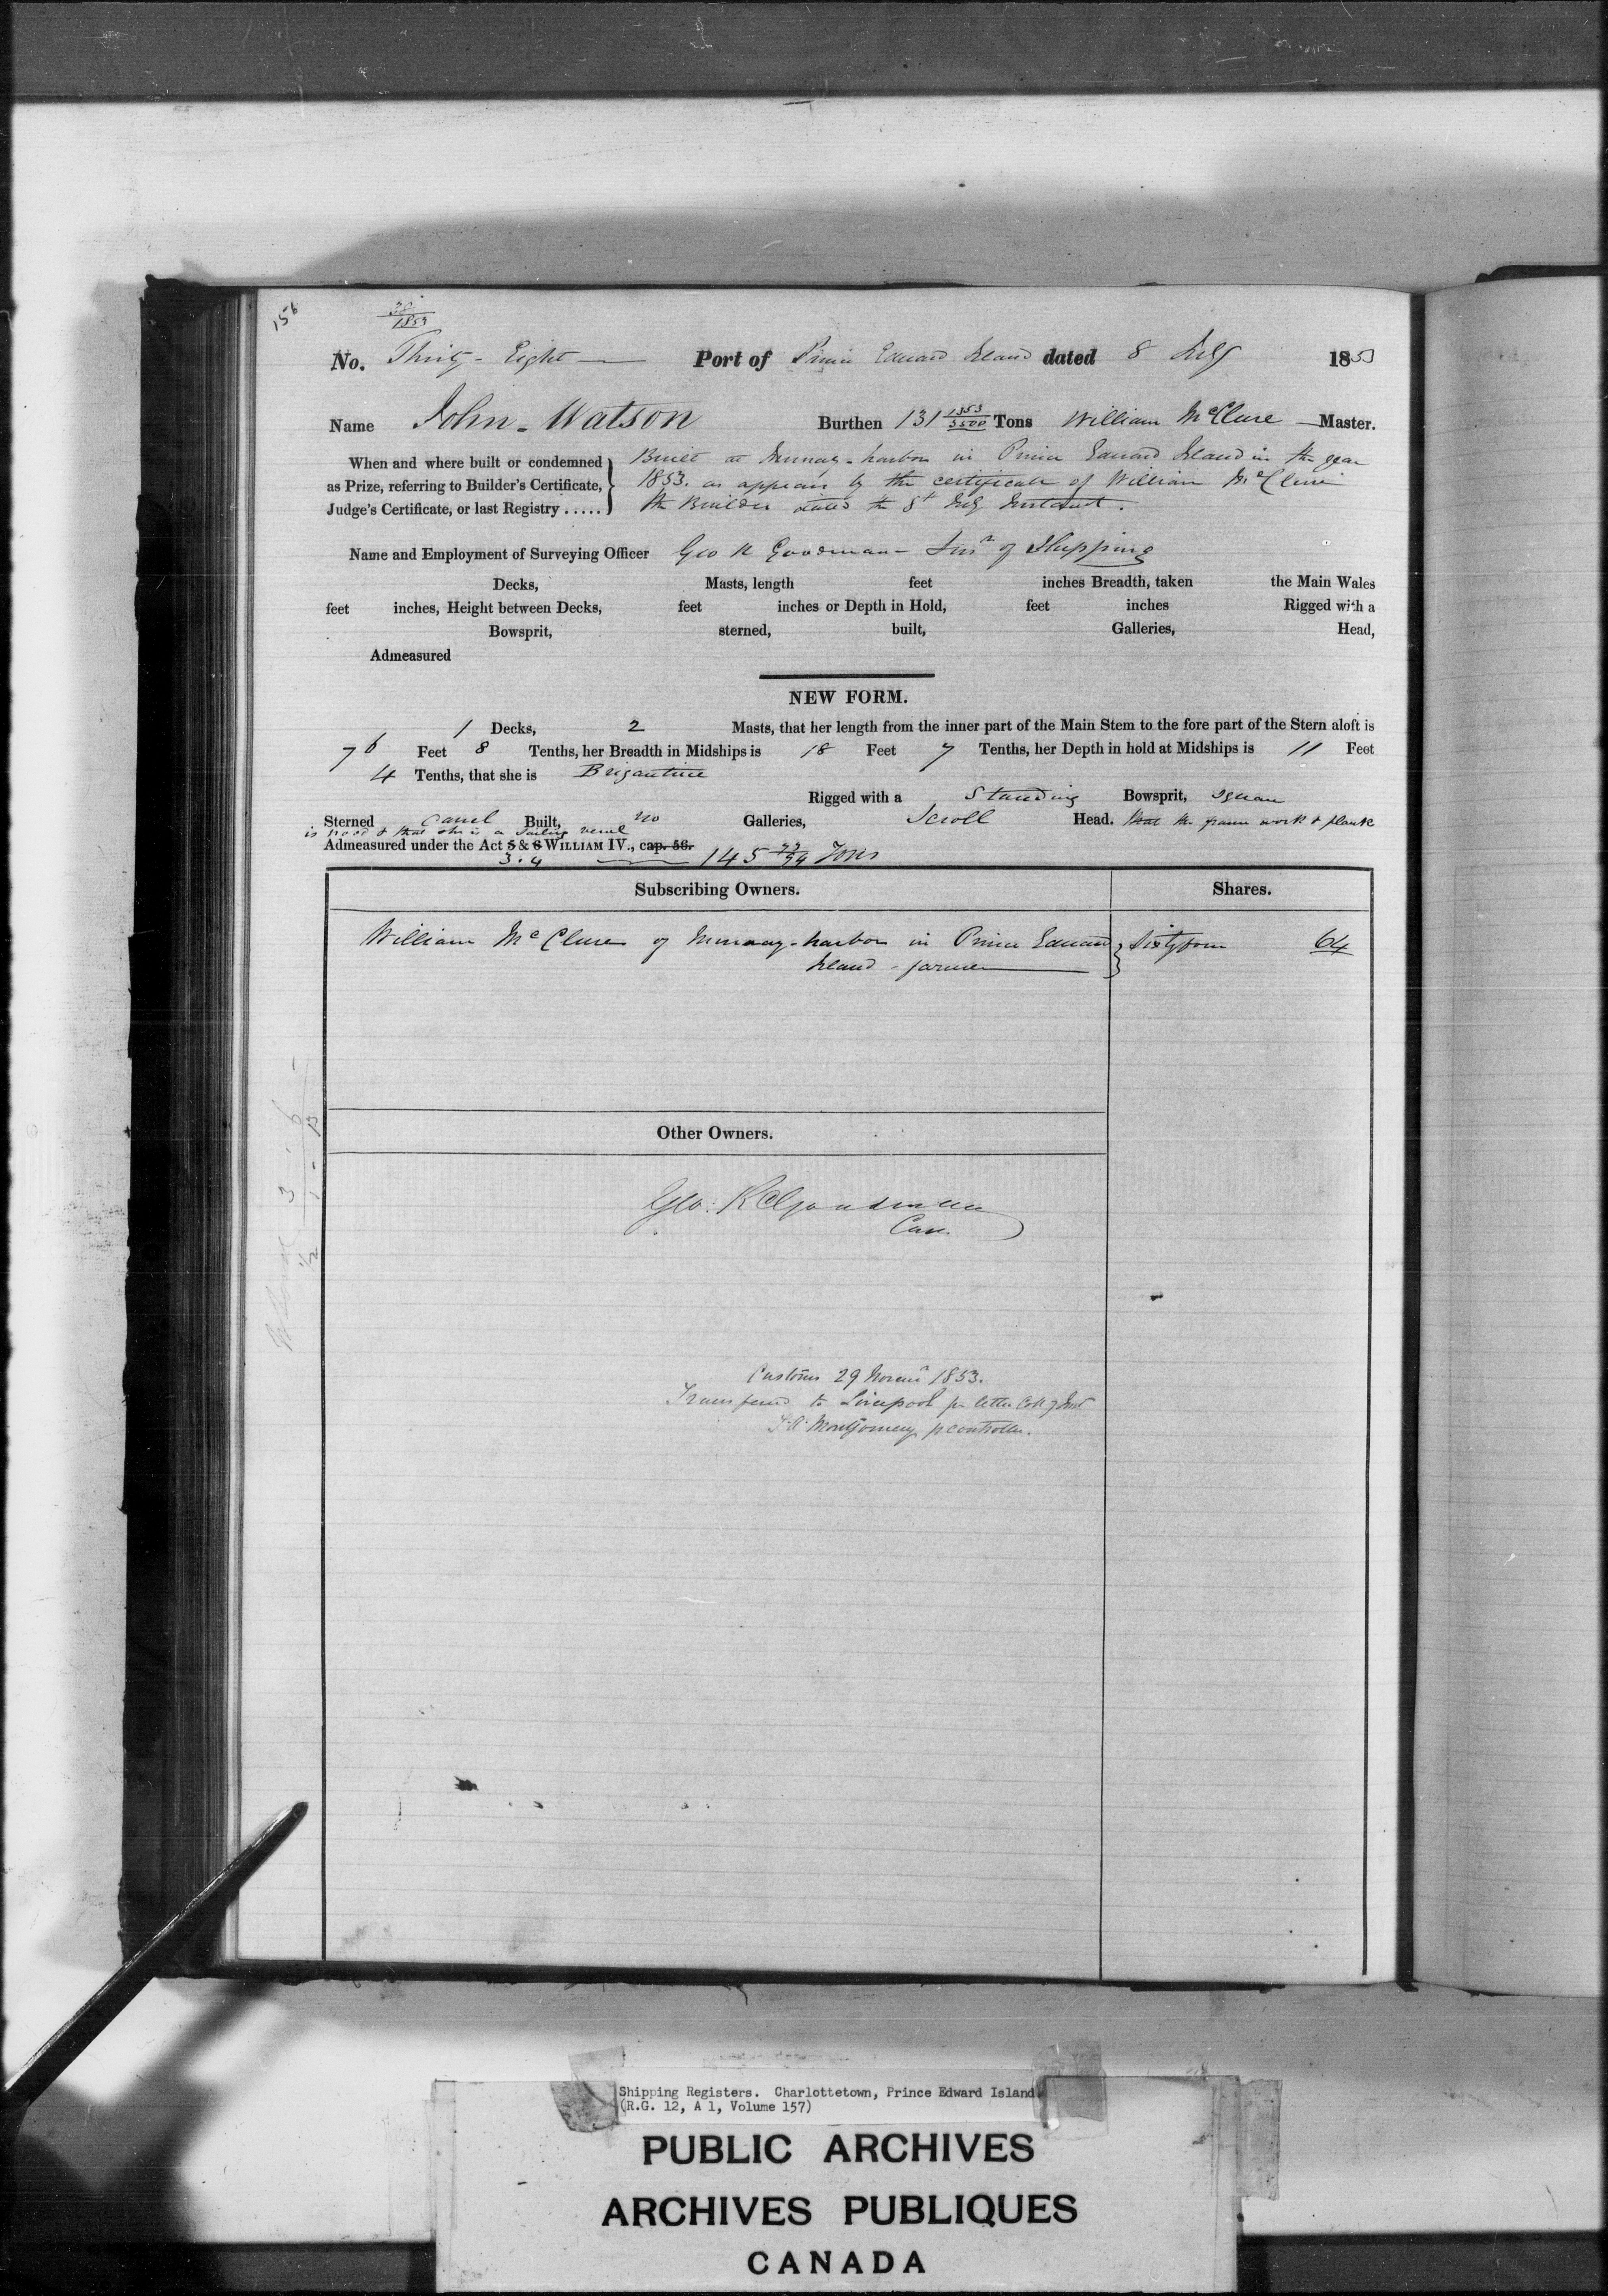 156
38/1853
No. Thirty-Eight Port of Prince Edward Island dated 8 July 1853
Name John Watson Burthen 131 1353/3500 Tons William McClure Master.
When and where built or condemned as Prize, referring to Builder's Certificate, Judge's Certificate, or last Registry .....
Built at Murray-harbor in Prince Edward Island in the year
1853. as appears by the certificate of William McClure
the Builder dated the 8th July Instant.
Name and Employment of Surveying Officer Geo R Goodman Surr of Shipping
Decks, Masts, length feet inches Breadth, taken the Main Wales
feet inches, Height between Decks, feet inches or Depth in Hold, feet inches Rigged with a
Bowsprit, sterned, built, Galleries, Head,
Admeasured
NEW FORM.
1 Decks, 2 Masts, that her length from the inner part of the Main Stem to the fore part of the Stern aloft is
76 Feet 8 Tenths, her Breadth in Midships is 18 Feet 7 Tenths, her Depth in hold at Midships is 11 Feet
4 Tenths, that she is Brigantine
Rigged with a Standing Bowsprit, Square
Sterned Carvel Built, no Galleries, Scroll Head. that the frame work & plank
is wood & that she is a Sailing vessel
Admeasured under the Act 5 & 6 WILLIAM IV., cap. 56.
3.4 145 Tons
Subscribing Owners. Shares.
William McClure of Murray-harbor in Prince Edward } Sixty four 64
Island - farmer
Other Owners.
Geo: R Goodman
Con.
Customs 29 Novemr 1853.
Transferred to Liverpool pr letter
Montgomery p controller.
Shipping Registers. Charlottetown, Prince Edward Island
(R.G. 12, A 1, Volume 157)
PUBLIC ARCHIVES
ARCHIVES PUBLIQUES
CANADA